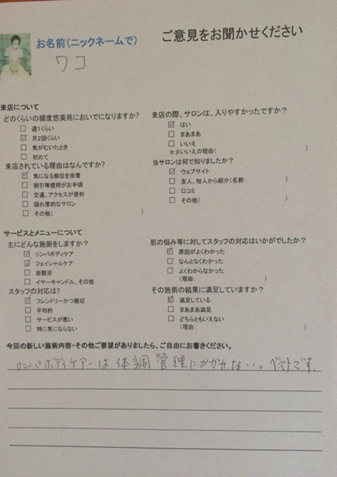 ご意見をお聞かせください
お名前(ニックネームで)
ワコ
来店について
どのくらいの頻度悠美苑においでになりますか?
□ 週1くらい
☑ 月2回くらい
□ 気がむいたとき
□ 初めて
来店されている理由はなんですか?
☑ 気になる部位を改善
□ 割引等値段がお手頃
□ 交通、アクセスが便利
□ 隠れ家的なサロン
□ その他( )
来店の際、サロンは、入りやすかったですか?
☑ はい
□ まあまあ
□ いいえ
☆彡いいえの理由( )
当サロンは何で知りましたか?
☑ ウェブサイト
□ 友人、知人から紹介(名前: )
□ 口コミ
□ その他( )
サービスとメニューについて
主にどんな施術をしますか?
☑ リンパボディケア
☑ フェイシャルケア
□ 岩盤浴
□ イヤーキャンドル、その他
スタッフの対応は?
☑ フレンドリーかつ親切
□ 平均的
□ サービスが悪い
□ 特に気にならない
肌の悩み等に対してスタッフの対応はいかがでしたか?
☑ 原因がよくわかった
□ なんとなくわかった
□ よくわからなかった
(理由: )
その施術の結果に満足していますか?
☑ 満足している
□ まあまあ満足
□ どちらともいえない
(理由: )
今回の新しい施術内容・その他ご要望がありましたら、ご自由にお書きください。
リンパボディケアーは体調管理にかかせない。ベストです。